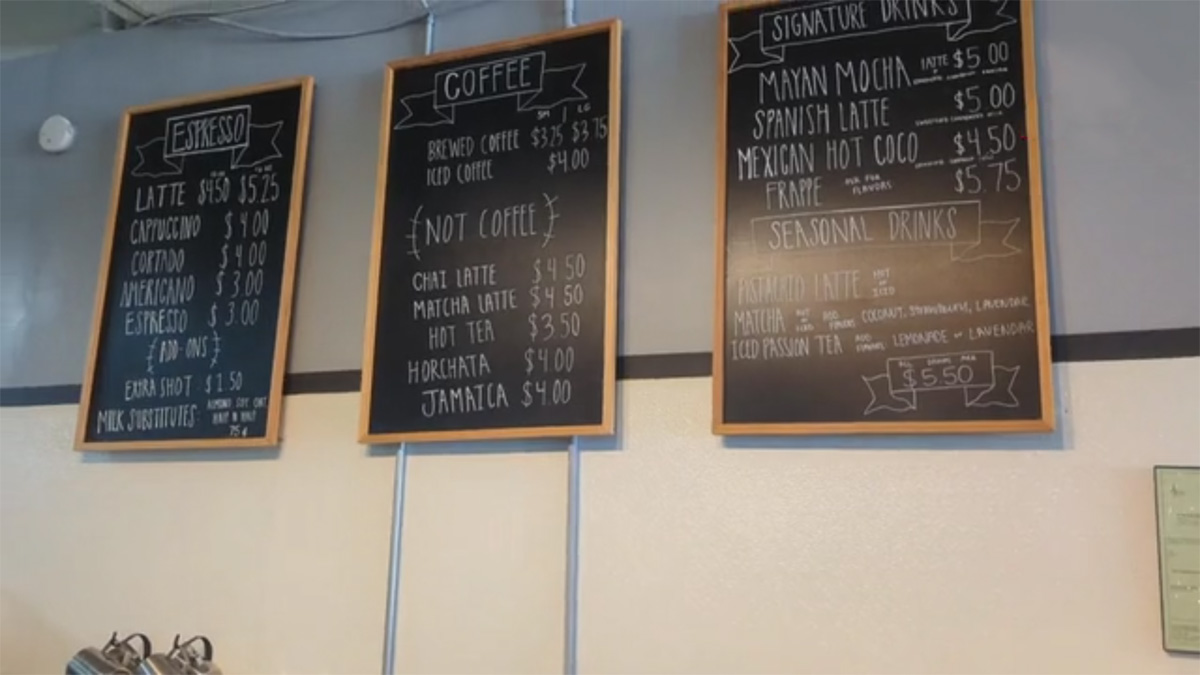 ESPRESSO
LATTE $4.50 $5.25
CAPPUCCINO $4.00
CORTADO $4.00
AMERICANO $3.00
ESPRESSO $3.00
ADD-ONS
EXTRA SHOT $1.50
MILK SUBSTITUTES: ALMOND SOY OAT
HALF N HALF
75¢
COFFEE
SM LG
BREWED COFFEE $3.25 $3.75
ICED COFFEE $4.00
{NOT COFFEE}
CHAI LATTE $4.50
MATCHA LATTE $4.50
HOT TEA $3.50
HORCHATA $4.00
JAMAICA $4.00
SIGNATURE DRINKS
MAYAN MOCHA LATTE $5.00
SPANISH LATTE $5.00
MEXICAN HOT COCO $4.50
FRAPPE ASK FOR FLAVORS $5.75
SEASONAL DRINKS
PISTACHIO LATTE HOT OR ICED
MATCHA HOT OR ICED ADD FLAVORS COCONUT, STRAWBERRIE, LAVENDAR
ICED PASSION TEA ADD FLAVORS LEMONADE or LAVENDAR
ALL DRINKS ARE
$5.50